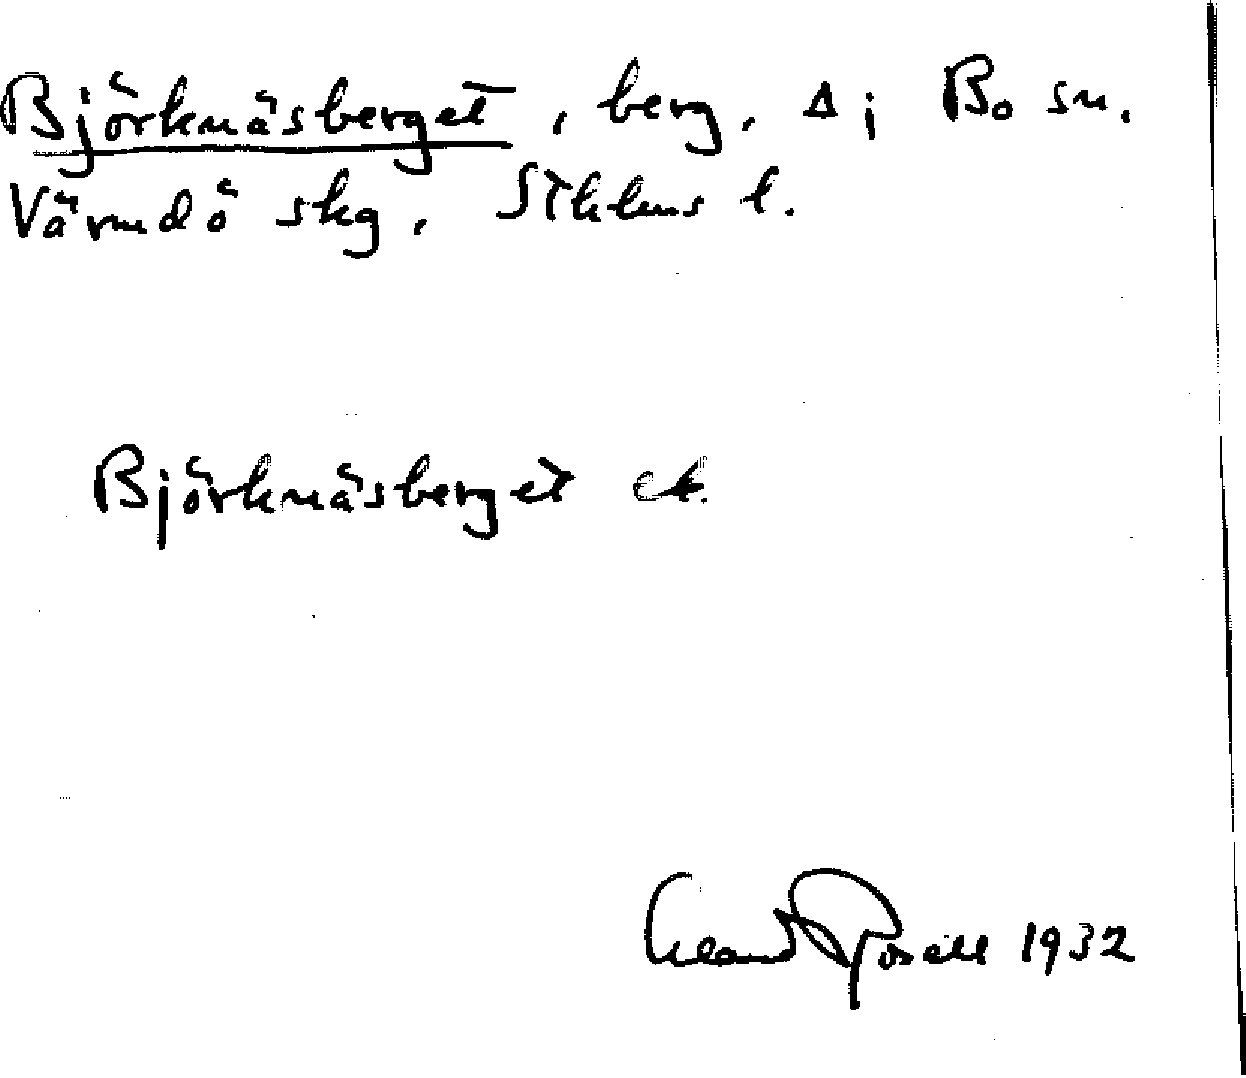 Björknäsberget, berg, Δ i Bo sn.
Värmdö skg, Sthlms l.
Björknäsberget
1932